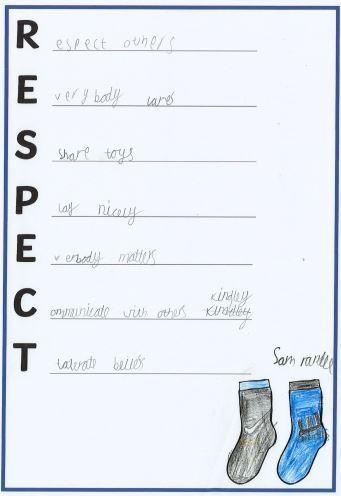 R espect others
E very body cares
S share toys
P lay nicely
E verbody matters
C ommunicate with others kindley
T tolerate beliefs
Sam